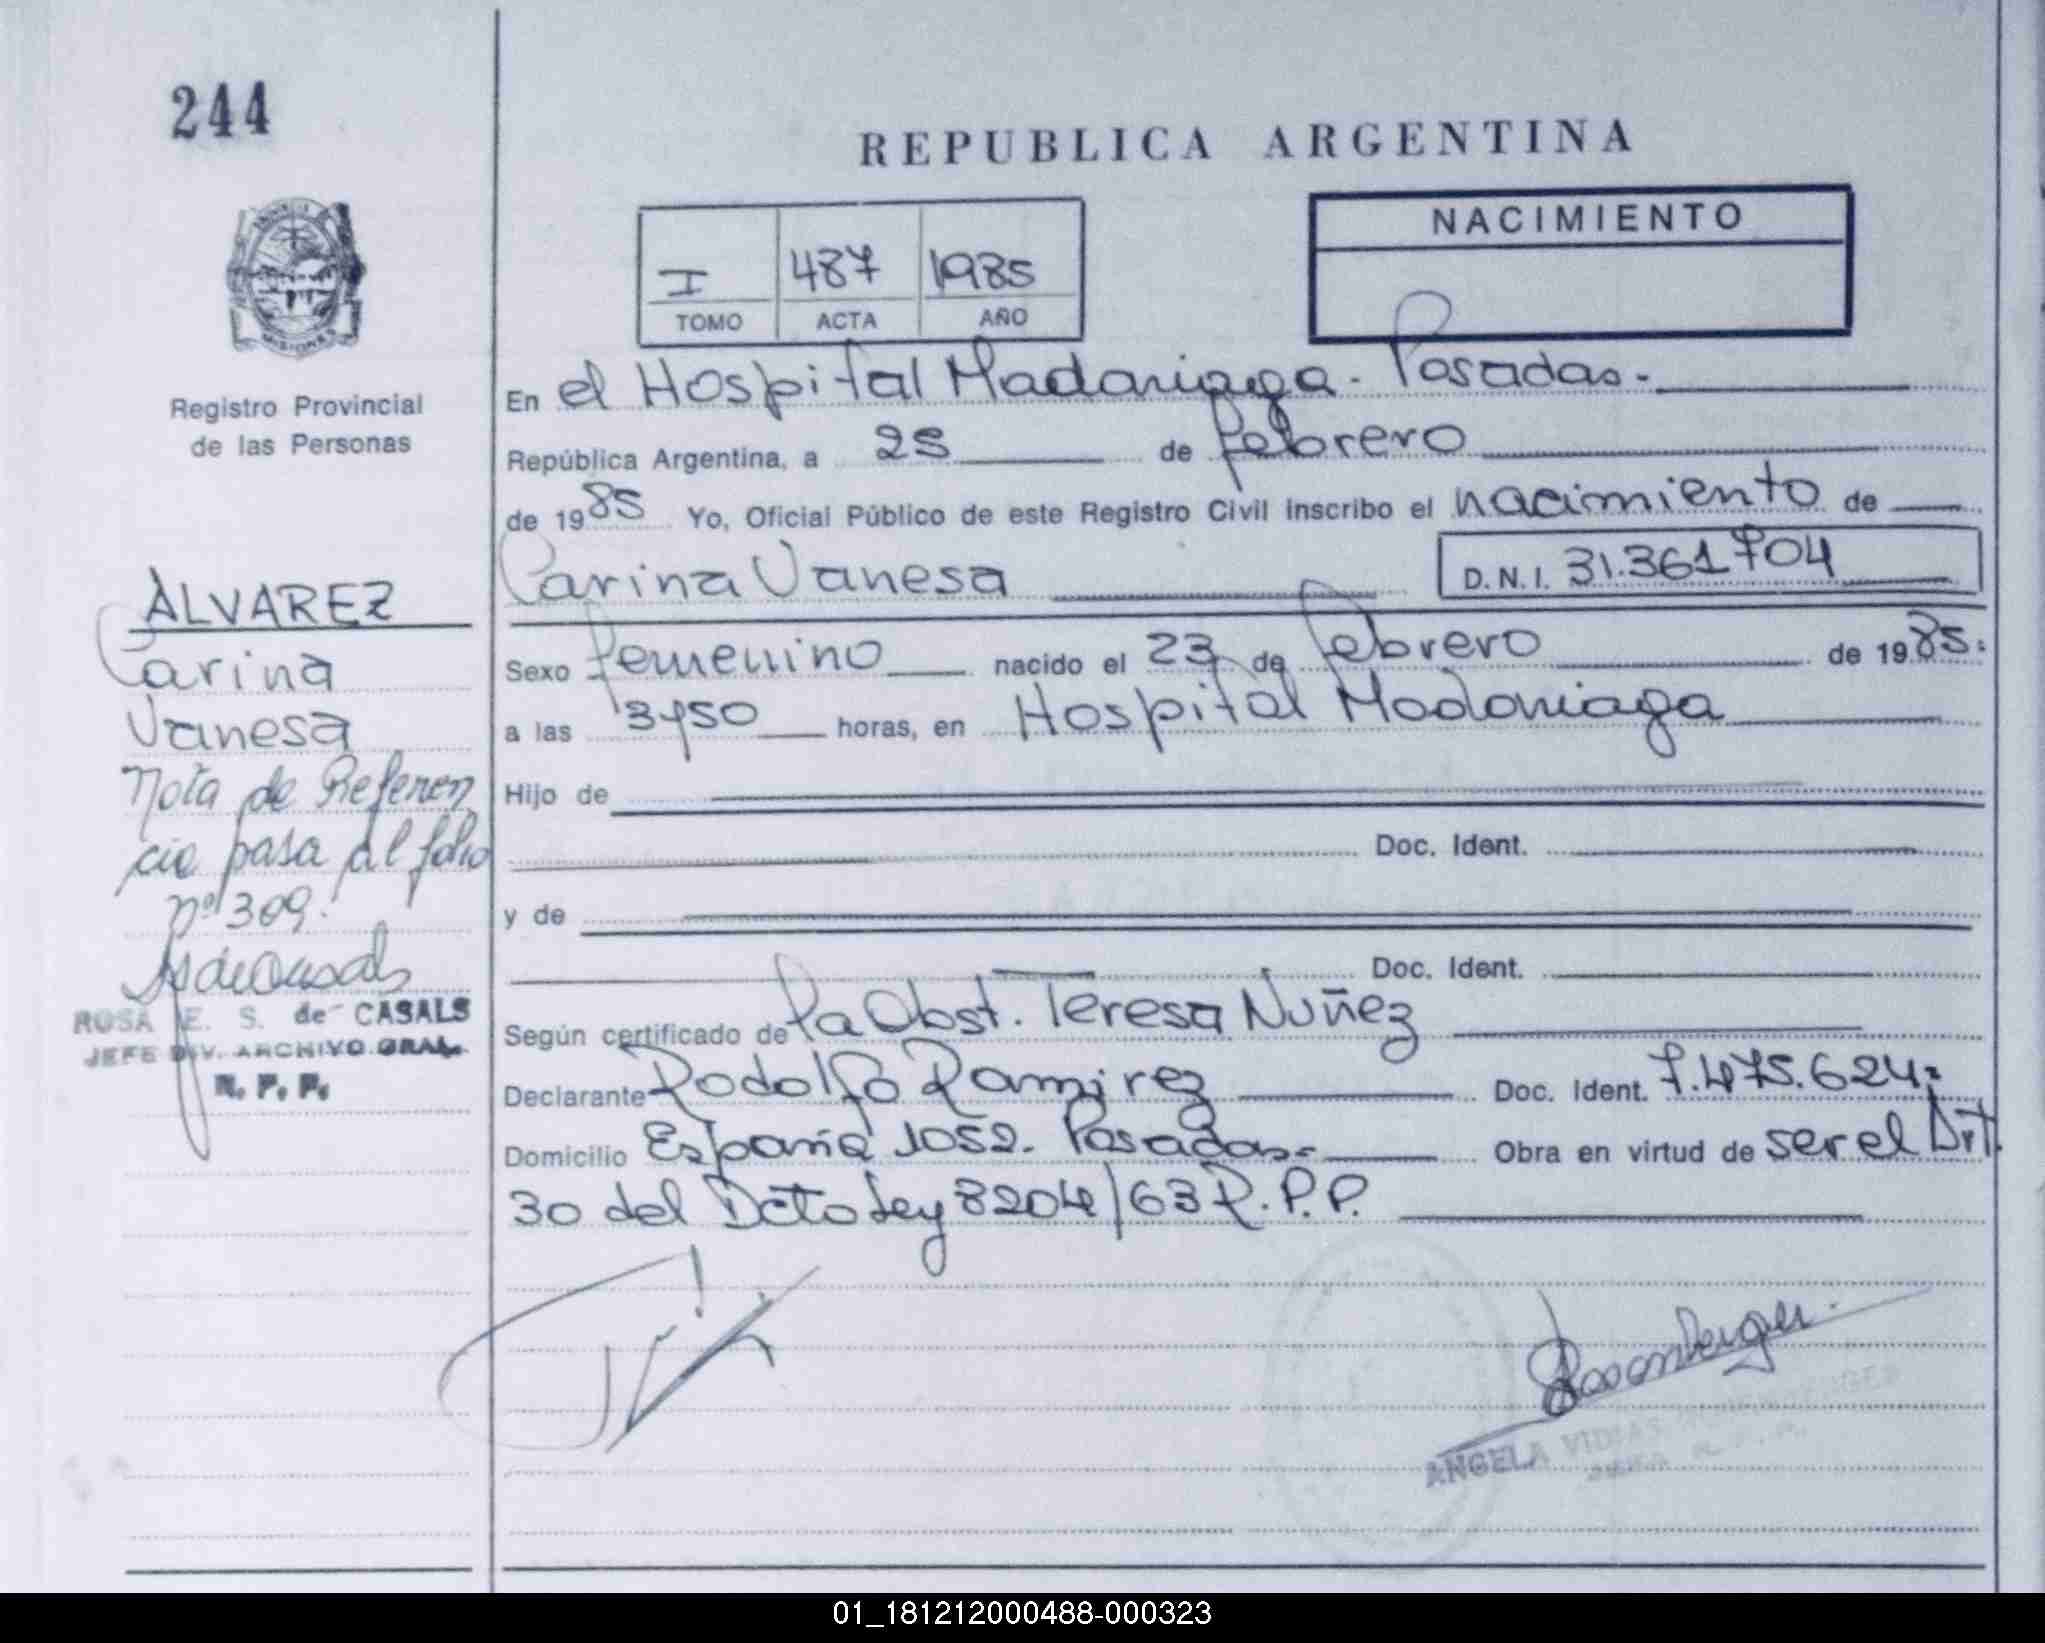 244
REPUBLICA ARGENTINA
I 487 1985
TOMO ACTA AÑO
NACIMIENTO
MISIONES
Registro Provincial
de las Personas
En el Hospital Madariaga - Posadas.-
República Argentina, a 25 de febrero
de 1985 Yo, Oficial Público de este Registro Civil inscribo el nacimiento de
Carina Vanesa D.N.I. 31.361704
ALVAREZ
Carina
Vanesa
Nota de Referen
cia pasa al folio
nº 309.
ROSA E. S. de CASALS
JEFE DIV. ARCHIVO GRAL.
R. P. P.
Sexo femenino nacido el 23 de febrero de 1985:
a las 13y50 horas, en Hospital Madariaga
Hijo de
Doc. Ident.
y de
Doc. Ident.
Según certificado de La Obst. Teresa Nuñez
Declarante Rodolfo Ramirez Doc. Ident. 7.475.624:
Domicilio España 1052. Posadas.- Obra en virtud de ser el Art.
30 del Dcto Ley 8204/63 R.P.P.
ANGELA
01_181212000488-000323